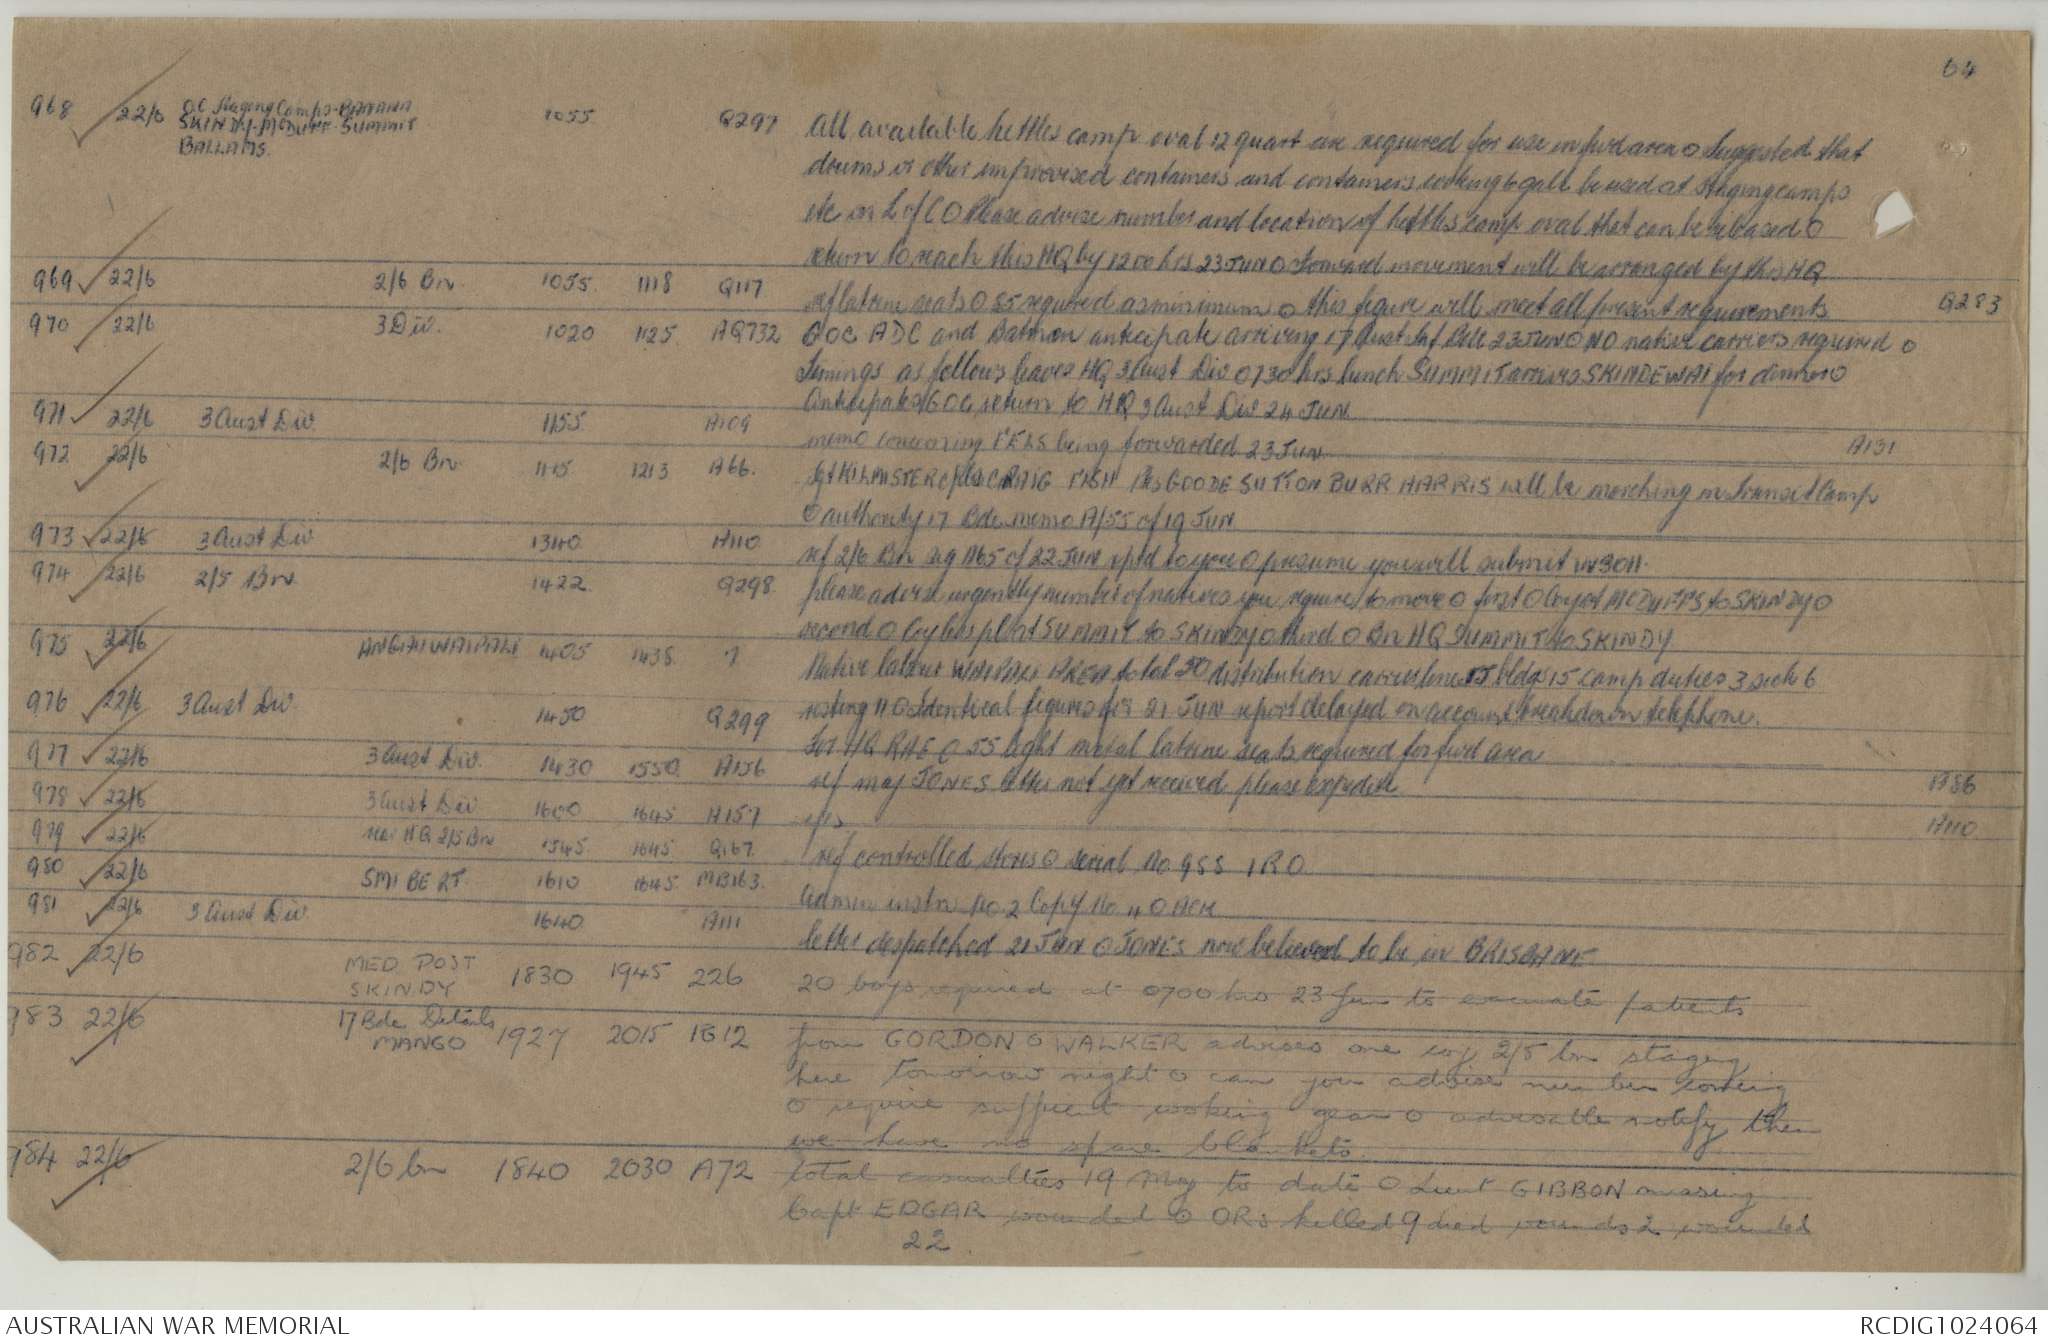 64
968 22/6 OC Staging Camps-BANANA 1055 Q297 All available kettles camp oval 12 quart are required for use in fwd area O Suggested that
SKINDY-McDUFF-SUMMIT drums or other improvised containers and containers cooking 6 gall be used at staging camps
BALLAMS. etc on L of C O Please advise number and location of kettles camp oval that can be released O
return to reach this HQ by 1200 hrs 23 JUN O forward movement will be arranged by this HQ
969 22/6 2/6 Bn. 1055. 1118 Q117 ref latrine seats O 85 required as minimum O this figure will meet all present requirements Q283
970 22/6 3 Div. 1020 1125. AQ732 GOC ADC and Batman anticipate arriving 17 Aust Inf Bde 23 JUN O NO native carriers required O
Timings as follows leaves HQ 3 Aust Div 0730 hrs lunch SUMMIT arrives SKINDEWAI for dinner O
Anticipates GOC return to HQ 3 Aust Div 24 JUN
971 22/6 3 Aust Div. 1155 A109 memo concerning being forwarded 23 JUN A131
972 22/6 2/6 Bn 1115 1213 A66. Sgt KILMISTER CRAIG Ptes GOODE SUTTON BURR HARRIS will be marching in Transit Camp
O authority 17 Bde memo A/55 of 19 JUN
973 22/6 3 Aust Div 1340 A110 ref 2/6 Bn sig A65 of 22 JUN rptd to you O presume you will submit
974 22/6 2/5 Bn 1422. Q298 please advise urgently number of natives you require to move O first O Coy at McDUFFS to SKINDY O
second O Coy less pl at SUMMIT to SKINDY O third O Bn HQ SUMMIT to SKINDY
975 22/6 ANGAU WAIPALI 1405 1438 7 Native labour WAIPALI AREA total 50 distribution carriers bldgs 15 camp duties 3 sick 6
resting 11 O Identical figures for 21 JUN report delayed on account breakdown telephone.
976 22/6 3 Aust Div. 1450 Q299 For HQ RAE O 55 light metal latrine seats required for fwd area
977 22/6 3 Aust Div. 1430 1550. A156 ref maj JONES letter not yet received please expedite A986
978 22/6 3 Aust Div 1600 1645 A157 yes A110
979 22/6 rear HQ 2/5 Bn 1545. 1645 Q167. ref controlled stores O serial No 955 1 RO.
980 22/6 SMIBERT. 1610 1645. MB163. Admin instn No. 2 Copy No. 11 O ACK
981 22/6 3 Aust Div. 1640 A111 letter despatched 21 JUN O JONES now believed to be in BRISBANE
982 22/6 MED POST 1830 1945 226 20 boys required at 0700 hrs 23 Jun to evacuate patients
SKINDY
983 22/6 17 Bde Details 1927 2015 1G12 from GORDON O WALKER advises one coy 2/5 bn staging
MANGO here tomorrow night O can you advise number coming
O require sufficient cooking gear O advisable notify them
we have no spare blankets.
984 22/6 2/6 bn 1840 2030 A72 total casualties 19 May to date O Lieut GIBBON missing
Capt EDGAR wounded O ORs killed 9 died wounds 2 wounded
22
AUSTRALIAN WAR MEMORIAL RCDIG1024064